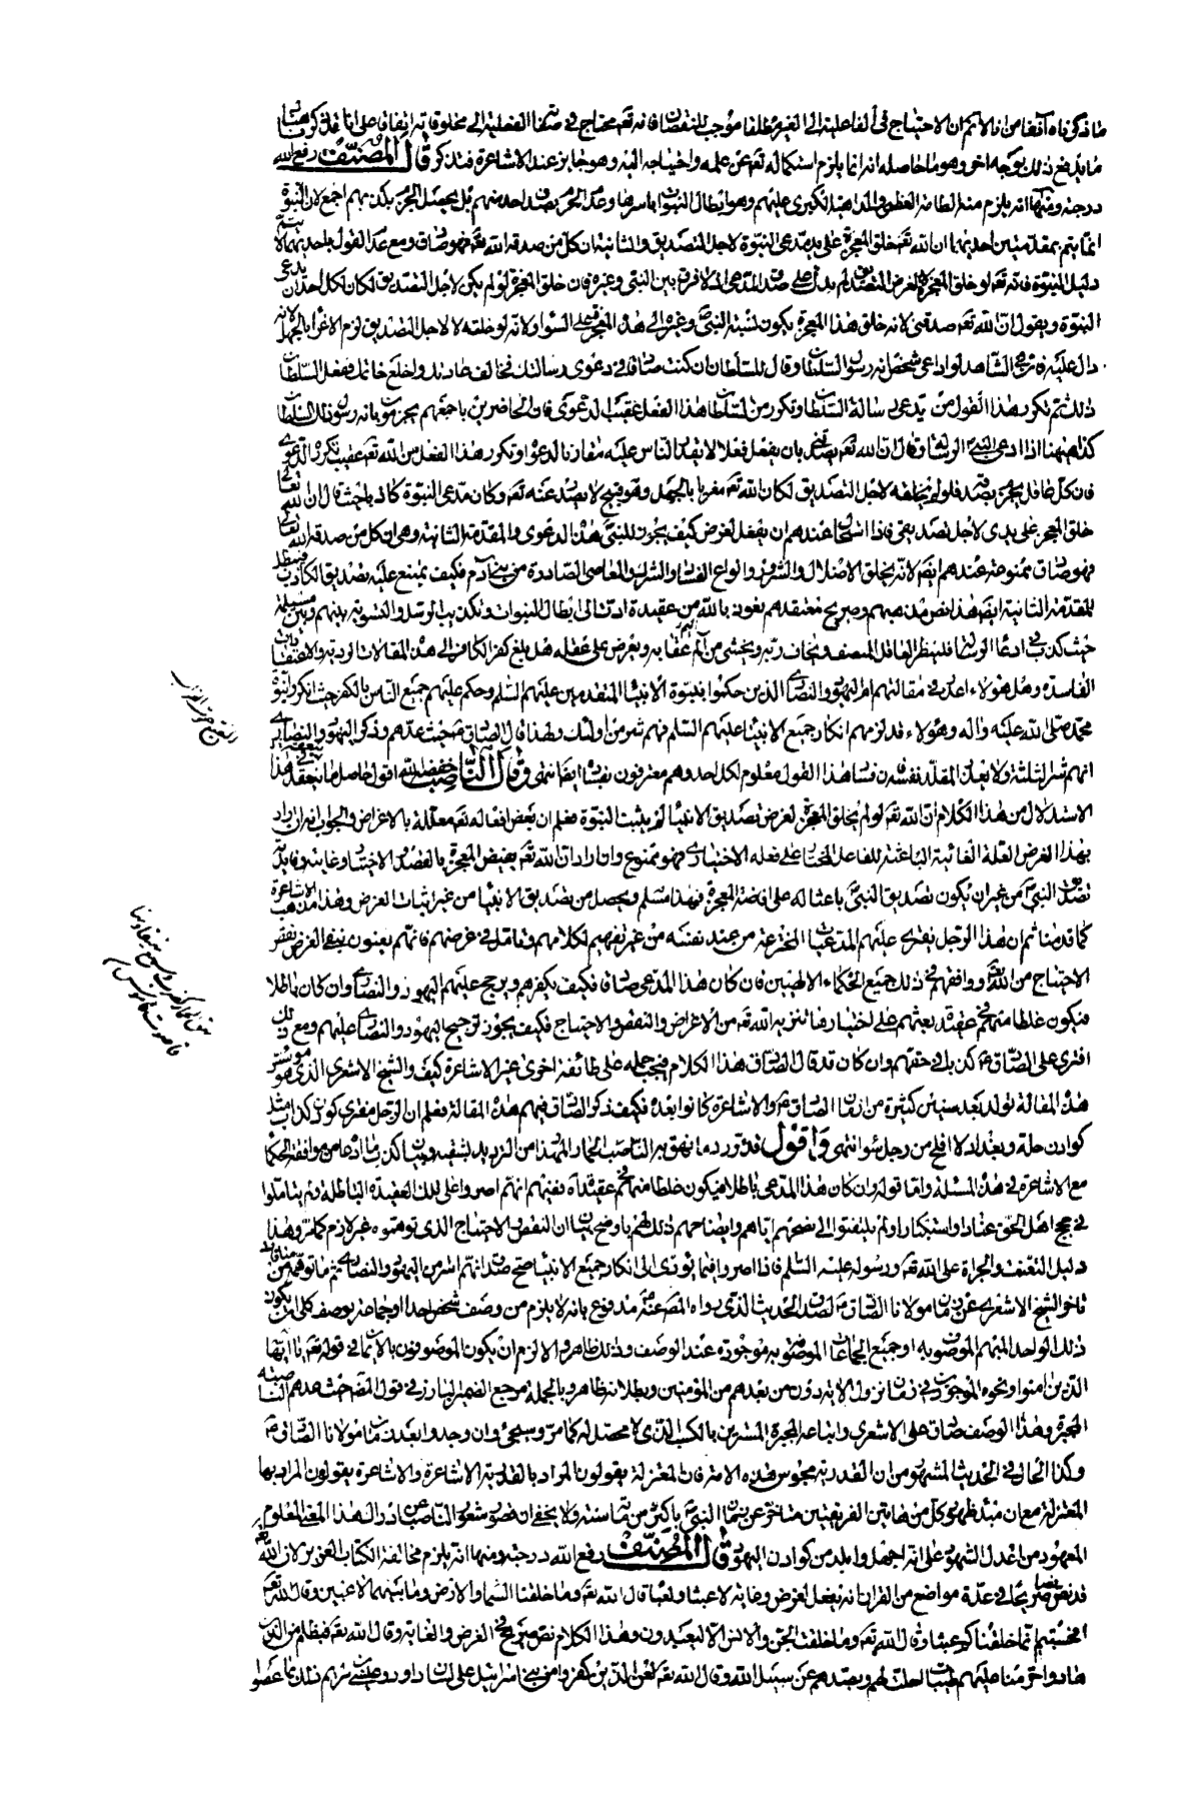 ما ذكرناه آنفا من انا لا نم ان الاحتياج في الفاعلية الى الغير مطلقا موجب للنقصان فانه تعه محتاج في صفاته الفعلية الى مخلوقاته اتفاقا على انا قد ذكرنا هناك
ما يدفع ذلك بوجه اخر وهو ما حاصله انه انما يلزم استكماله تعه عن علمه واحتياجه اليه وهو جايز عند الاشاعرة فتذكر قال المصنف رفع الله
درجته ومنها انه يلزم منه الطامة العظمى والداهية الكبرى عليهم وهو ابطال النبوات باسرها وعدم الجزم بصدق احد منهم بل يحصل الجزم بكذبهم اجمع لان النبوة
انما يتم بمقدمتين احديهما ان الله تعه خلق المعجزة على يد مدعى النبوة لاجل التصديق والثانية ان كل من صدقه الله تعه فهو صادق ومع عدم القول باحديهما لا يتم
دليل النبوة فانه تعه لو خلق المعجزة لا لغرض التصديق لم يدل على صدق المدعى اذ لا فرق بين النبي وغيره فان خلق المعجزة لو لم يكن لاجل التصديق لكان لكل احد ان يدعى
النبوة ويقول ان الله تعه صدقني لانه خلق هذا المعجزة ويكون نسبة النبي وغيره الى هذا المعجزة على السواء ولانه لو خلقه لا لاجل التصديق لزم الاغراء بالجهل لانه
دال عليه فان في الشاهد لو ادعى شخص انه رسول السلطان وقال للسلطان ان كنت صادقا في دعوى رسالتك فخالف عادتك واخلع خاتمك ففعل السلطان
ذلك ثم تكرر هذا القول من يدعى رسالة السلطان وتكرر من السلطان هذا الفعل عقيب الدعوى فان الحاضرين باجمعهم يجزمون بانه رسول ذلك السلطان
كذا هيهنا اذا ادعى النبي الرسالة وقال ان الله تعه يصدقني بان يفعل فعلا لا يقدر الناس عليه مقارنا لدعواه وتكرر هذا الفعل من الله تعه عقيب تكرر الدعوى
فان كل عاقل يجزم بصدقه فلو لم يخلقه لاجل التصديق لكان الله تعه مغريا بالجهل وهو قبيح لا يصدر عنه تعه وكان مدعى النبوة كاذبا حيث قال ان الله تعالى
خلق المعجز على يدى لاجل تصديقي فاذا استحال عندهم ان يفعل لغرض كيف يجوز للنبي هذا الدعوى والمقدمة الثانية وهي ان كل من صدقه الله تعالى
فهو صادق ممنوعة عندهم ايضا لانه يخلق الاضلال والشرور وانواع الفساد والشرك والمعاصي الصادرة من بني آدم فكيف يمتنع عليه تصديق الكاذب فتبطل
المقدمة الثانية ايضا هذا نص مذهبهم وصريح معتقدهم نعوذ بالله من عقيدة ادت الى ابطال النبوات وتكذيب الرسل والتسوية بينهم وبين مسيلمة
حيث كذب في ادعاء الرسالة فلينظر العاقل المنصف ويخاف ربه ويخشى من اليم عقابه ويعرض على عقله هل بلغ كفر الكافر الى هذه المقالات الردية والاعتقادات
الفاسدة وهل هؤلاء اعذر في مقالتهم ام اليهود والنصارى الذين حكموا بنبوة الانبياء المتقدمين عليهم السلم وحكم عليهم جميع الناس بالكفر حيث انكروا نبوة
محمد صلى الله عليه واله وهؤلاء قد لزمهم انكار جميع الانبياء عليهم السلم فهم شر من اولئك ولهذا قال الصادق حيث عدهم وذكر اليهود والنصارى
انهم شر الثلثة ولا يعذر المقلد نفسه فان فساد هذا القول معلوم لكل احد وهم معترفون بفساده ايضا انتهى وقال الناصب خفضه الله اقول حاصل ما في هذا
الاستدلال من هذا الكلام ان الله تعه لو لم يخلق المعجزة لغرض تصديق الانبياء لم يثبت النبوة فعلم ان بعض افعاله تعه معللة بالاغراض والجواب انه ان اراد
بهذا الغرض العلة الغائية الباعثة للفاعل المختار على فعله الاختيارى فهو ممنوع وان اراد ان الله تعه يفيض المعجزة بالقصد والاختيار وغايته وفايدته
تصديق النبي من غير ان يكون تصديق النبي باعثا له على افاضة المعجزة فهذا مسلم ويحصل من تصديق الانبياء من غير اثبات الغرض وهذا مذهب الاشاعرة
كما قدمنا ثم ان هذا الرجل يفترى عليهم المدعيات المخترعة من عند نفسه من غير تفهم لكلامهم وتامل في غرضهم فانهم يعنون بنفي الغرض نفى
الاحتياج من الله تعالى ووافقهم في ذلك جميع الحكماء الالهيين فان كان هذا المدعى صادقا فكيف يكفرهم ويرجح عليهم اليهود والنصارى وان كان باطلا
فيكون غلطا منهم في عقيدة بعثهم على اختيارها تنزيه الله تعه من الاغراض والنقص والاحتياج فكيف يجوز ترجيح اليهود والنصارى عليهم ومع ذلك
افترى على الصادق كذبا في حقهم وان كان قد قال الصادق هذا الكلام فيجب حمله على طائفة اخرى غير الاشاعرة كيف والشيخ الاشعري الذى هو مؤسس
هذه المقالة تولد بعد سنين كثيرة من زمان الصادق والاشاعرة كانوا بعده فكيف ذكر الصادق فيهم هذه المقالة فعلم ان الرجل مفترى كودن كذاب مثل
كوادن حلة وبغداد لا افلح من رجل سوء انتهى واقول قد تورد ما نهق به الناصب الحمار المهذار من الترديد بشقيه وبان كذب ما ادعاه من موافقة الحكما
مع الاشاعرة في هذه المسئلة واما قوله وان كان هذا المدعى باطلا فيكون غلطا منهم في عقيدة اه ففيه انهم اصروا على تلك العقيدة الباطلة ولم يتاملوا
في حجج اهل الحق عنادا واستكبارا ولم يلتفتوا الى نصحهم اياهم وايضاحهم ذلك لهم باوضح بيان ان النقص والاحتياج الذى توهموه غير لازم كما مر وهذا
دليل التعنت والجراة على الله تعه ورسوله عليه السلم فاذا اصروا فيما يؤدى الى انكار جميع الانبياء صح وصدق انهم اشر من اليهود والنصارى ثم ما توهمه من منافاة
تاخر الشيخ الاشعرى عن زمان مولانا الصادق لصدق الحديث الذى رواه المصنف عنه مدفوع بانه لا يلزم من وصف شخص احدا او جماعة بوصف كلى ان يكون
ذلك الواحد المبهم الموصوف به او جميع الجماعات الموصوفة به موجودة عند الوصف وذلك ظاهر والا لزم ان يكون الموصوفون بالايمان في قوله تعه يا ايها
الذين امنوا ونحوه الموجودين في زمان نزول الاية دون من بعدهم من المؤمنين وبطلانه ظاهر وبالجملة مرجع الضمير البارز في قول المصنف حيث عدهم الناصبة
المجبرة وهذا الوصف صادق على الاشعرى واتباعه المجبرة المتسترين بالكسب الذى لا محصل له كما مر وسيجئ وان وجدوا بعد زمان مولانا الصادق
وكذا الحال في الحديث المشهور من ان القدرية مجوس هذه الامة فان المعتزلة يقولون المراد بالقدرية الاشاعرة والاشاعرة يقولون المراد بها
المعتزلة مع ان مبدء ظهور كل من هاتين الفريقين متاخر عن زمان النبي باكثر من مأة سنة ولا يخفى ان قصور شعور الناصب عن ادراك هذا المعنى المعلوم
المعهود من اعدل الشهود على انه اجهل وابلد من كوادن اليهود قال المصنف رفع الله درجته ومنها انه يلزم مخالفة الكتاب العزيز لان الله تعه
قد نص نصا صريحا في عدة مواضع من القران انه يفعل لغرض وغاية لا عبثا ولعبا قال الله تعه وما خلقنا السماء والارض وما بينهما لاعبين وقال الله تعه
افحسبتم انما خلقناكم عبثا وقال الله تعه وما خلقت الجن والانس الا ليعبدون وهذا الكلام نص صريح في الغرض والغاية وقال الله تعه فبظلم من الذين
هادوا حرمنا عليهم طيبات احلت لهم وبصدهم عن سبيل الله وقال الله تعه لعن الذين كفروا من بني اسرائيل على لسان داود وعيسى بن مريم ذلك بما عصوا